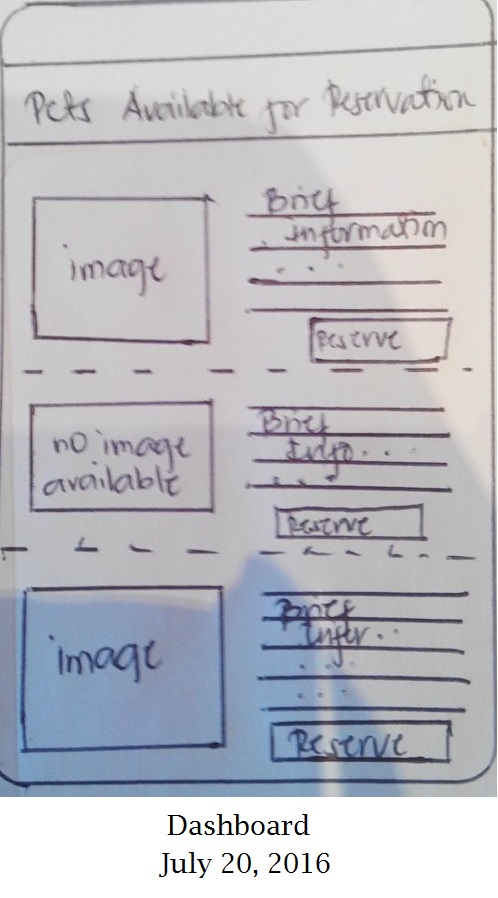 Pets Available for Reservation
image
Brief
Information
...
Reserve
no image
available
Brief
Info...
...
Reserve
image
Brief
Infor..
...
...
Reserve
Dashboard
July 20, 2016